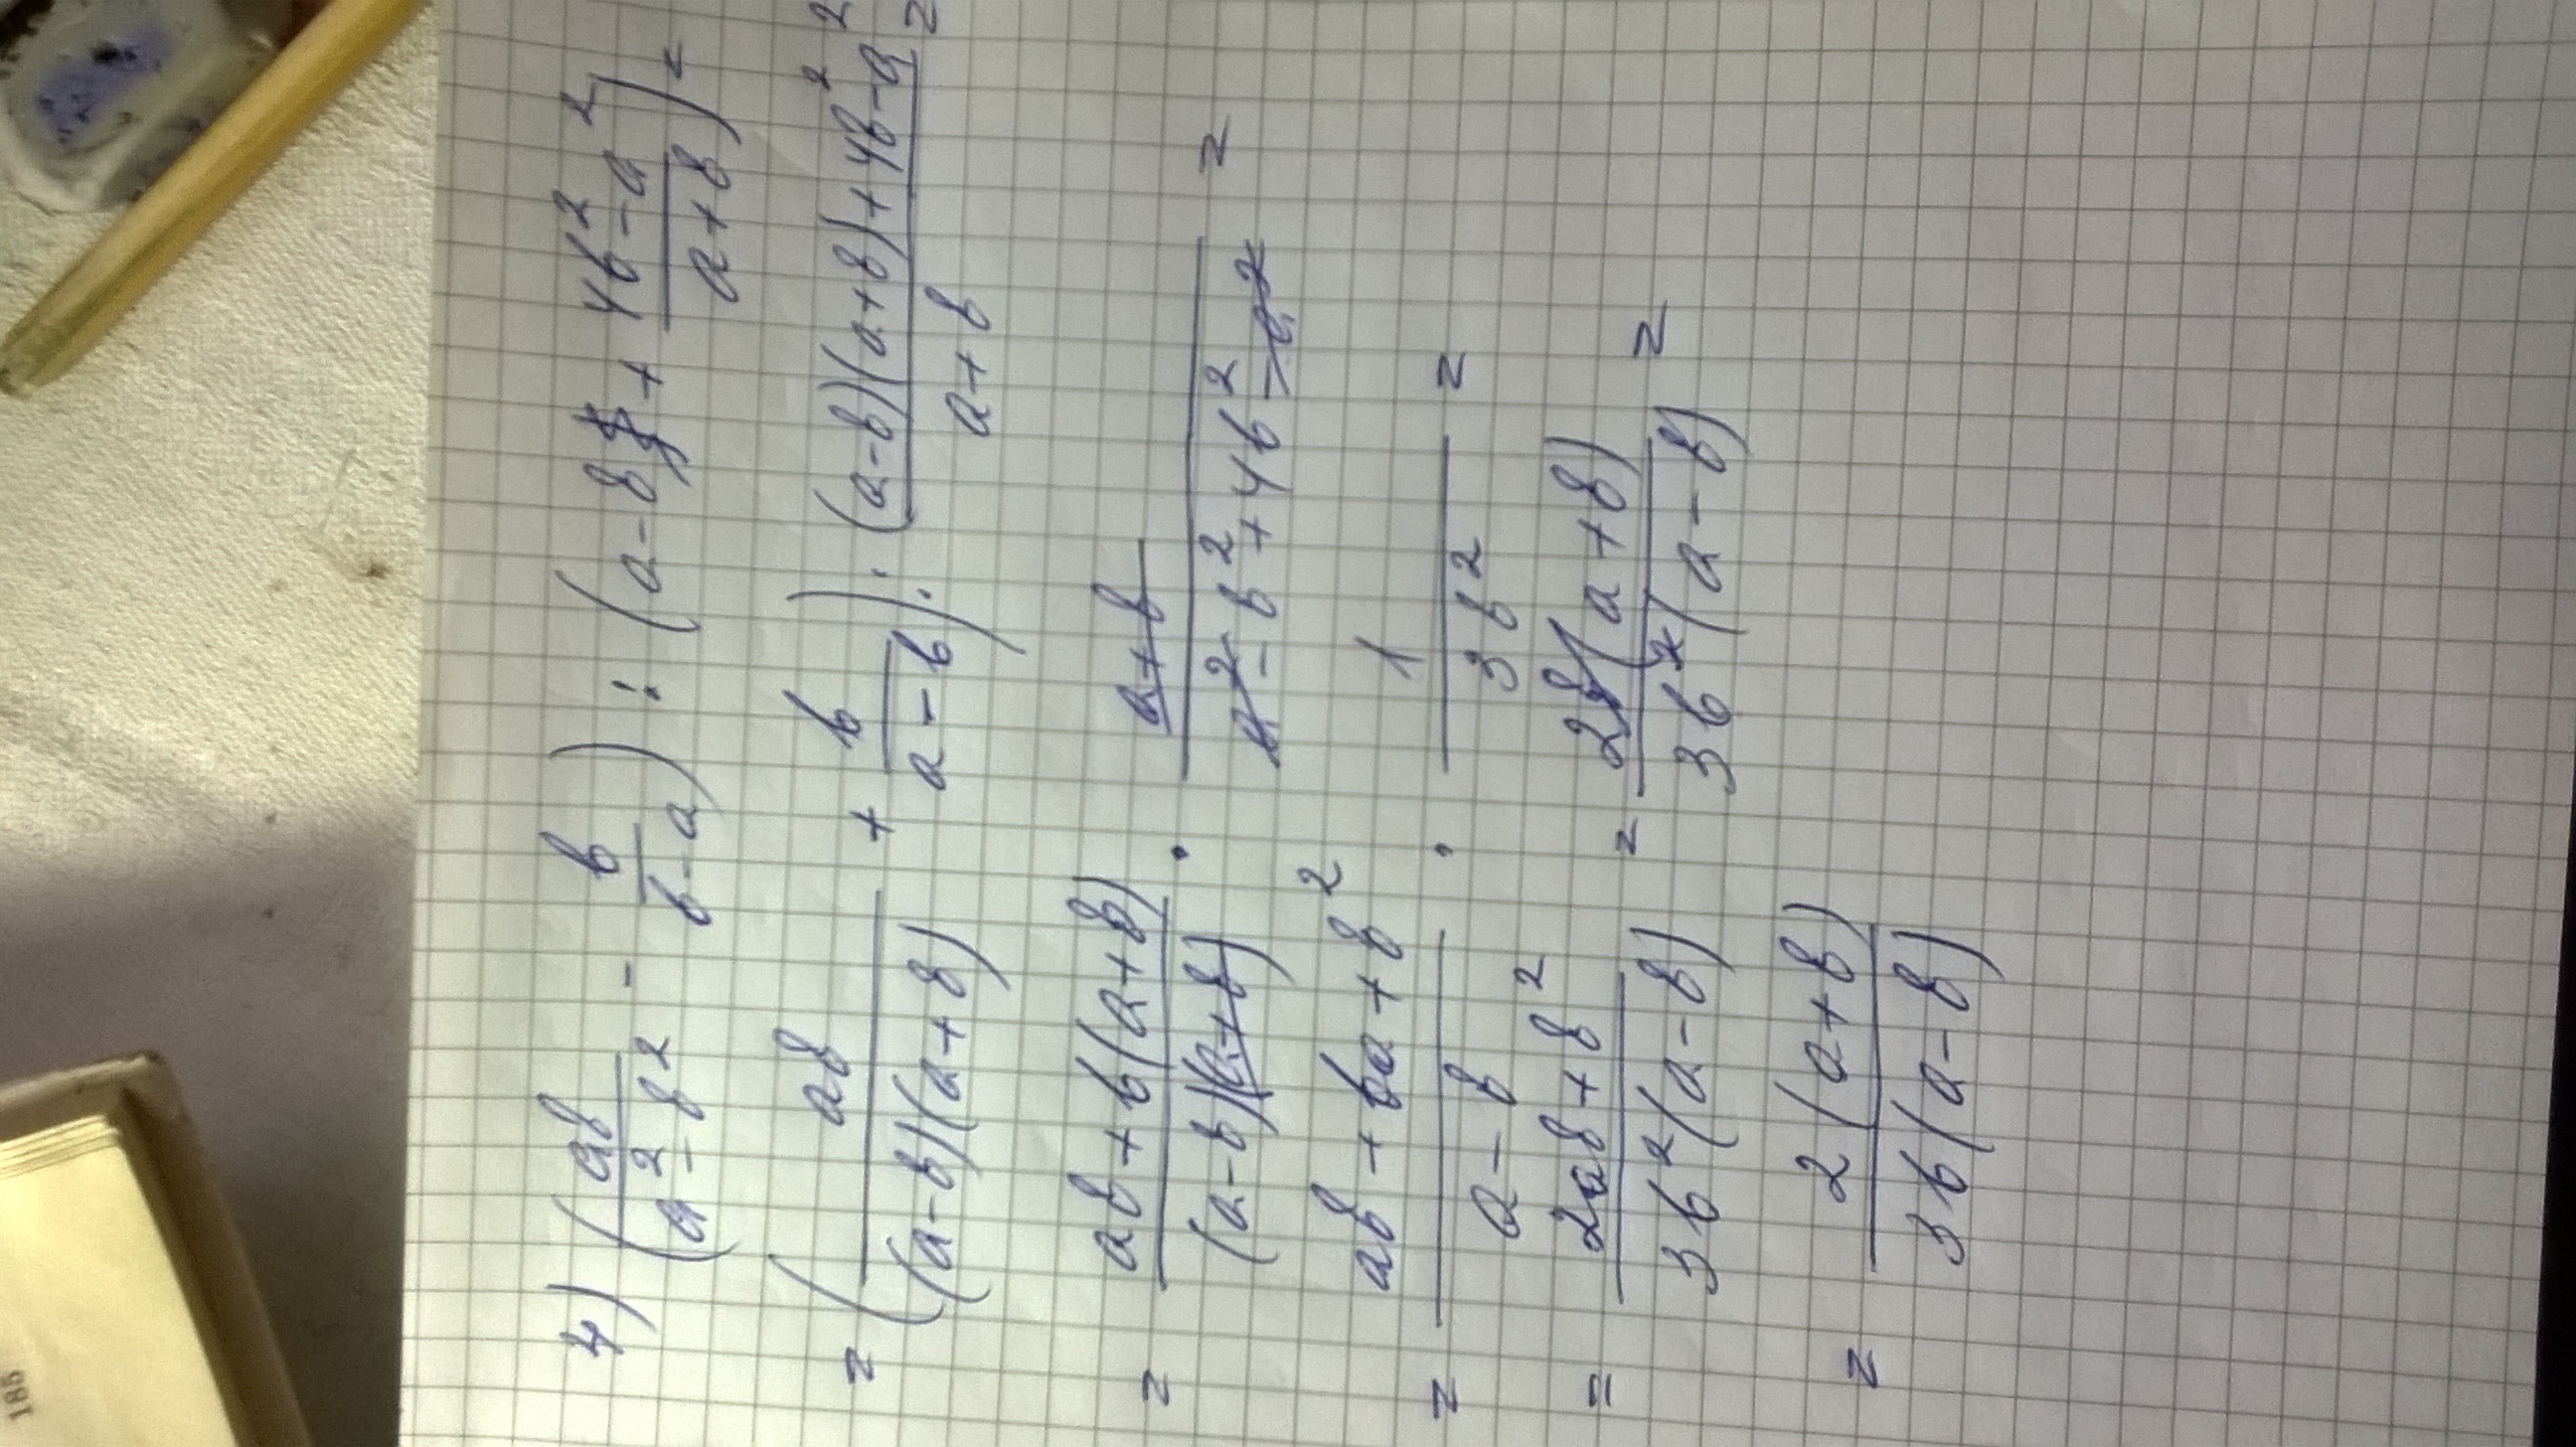 4) (ab/(a² - b²) - b/(b - a)) : (a - b + (4b² - a²)/(a + b)) =
= (ab/((a - b)(a + b)) + b/(a - b)) : ((a - b)(a + b) + 4b² - a²)/(a + b) =
= (ab + b(a + b))/((a - b)(a + b)) · (a + b)/(a² - b² + 4b² - a²) =
= (ab + ba + b²)/(a - b) · 1/(3b²) =
= (2ab + b²)/(3b²(a - b)) = 2b(a + b)/(3b²(a - b)) =
= 2(a + b)/(3b(a - b))
185